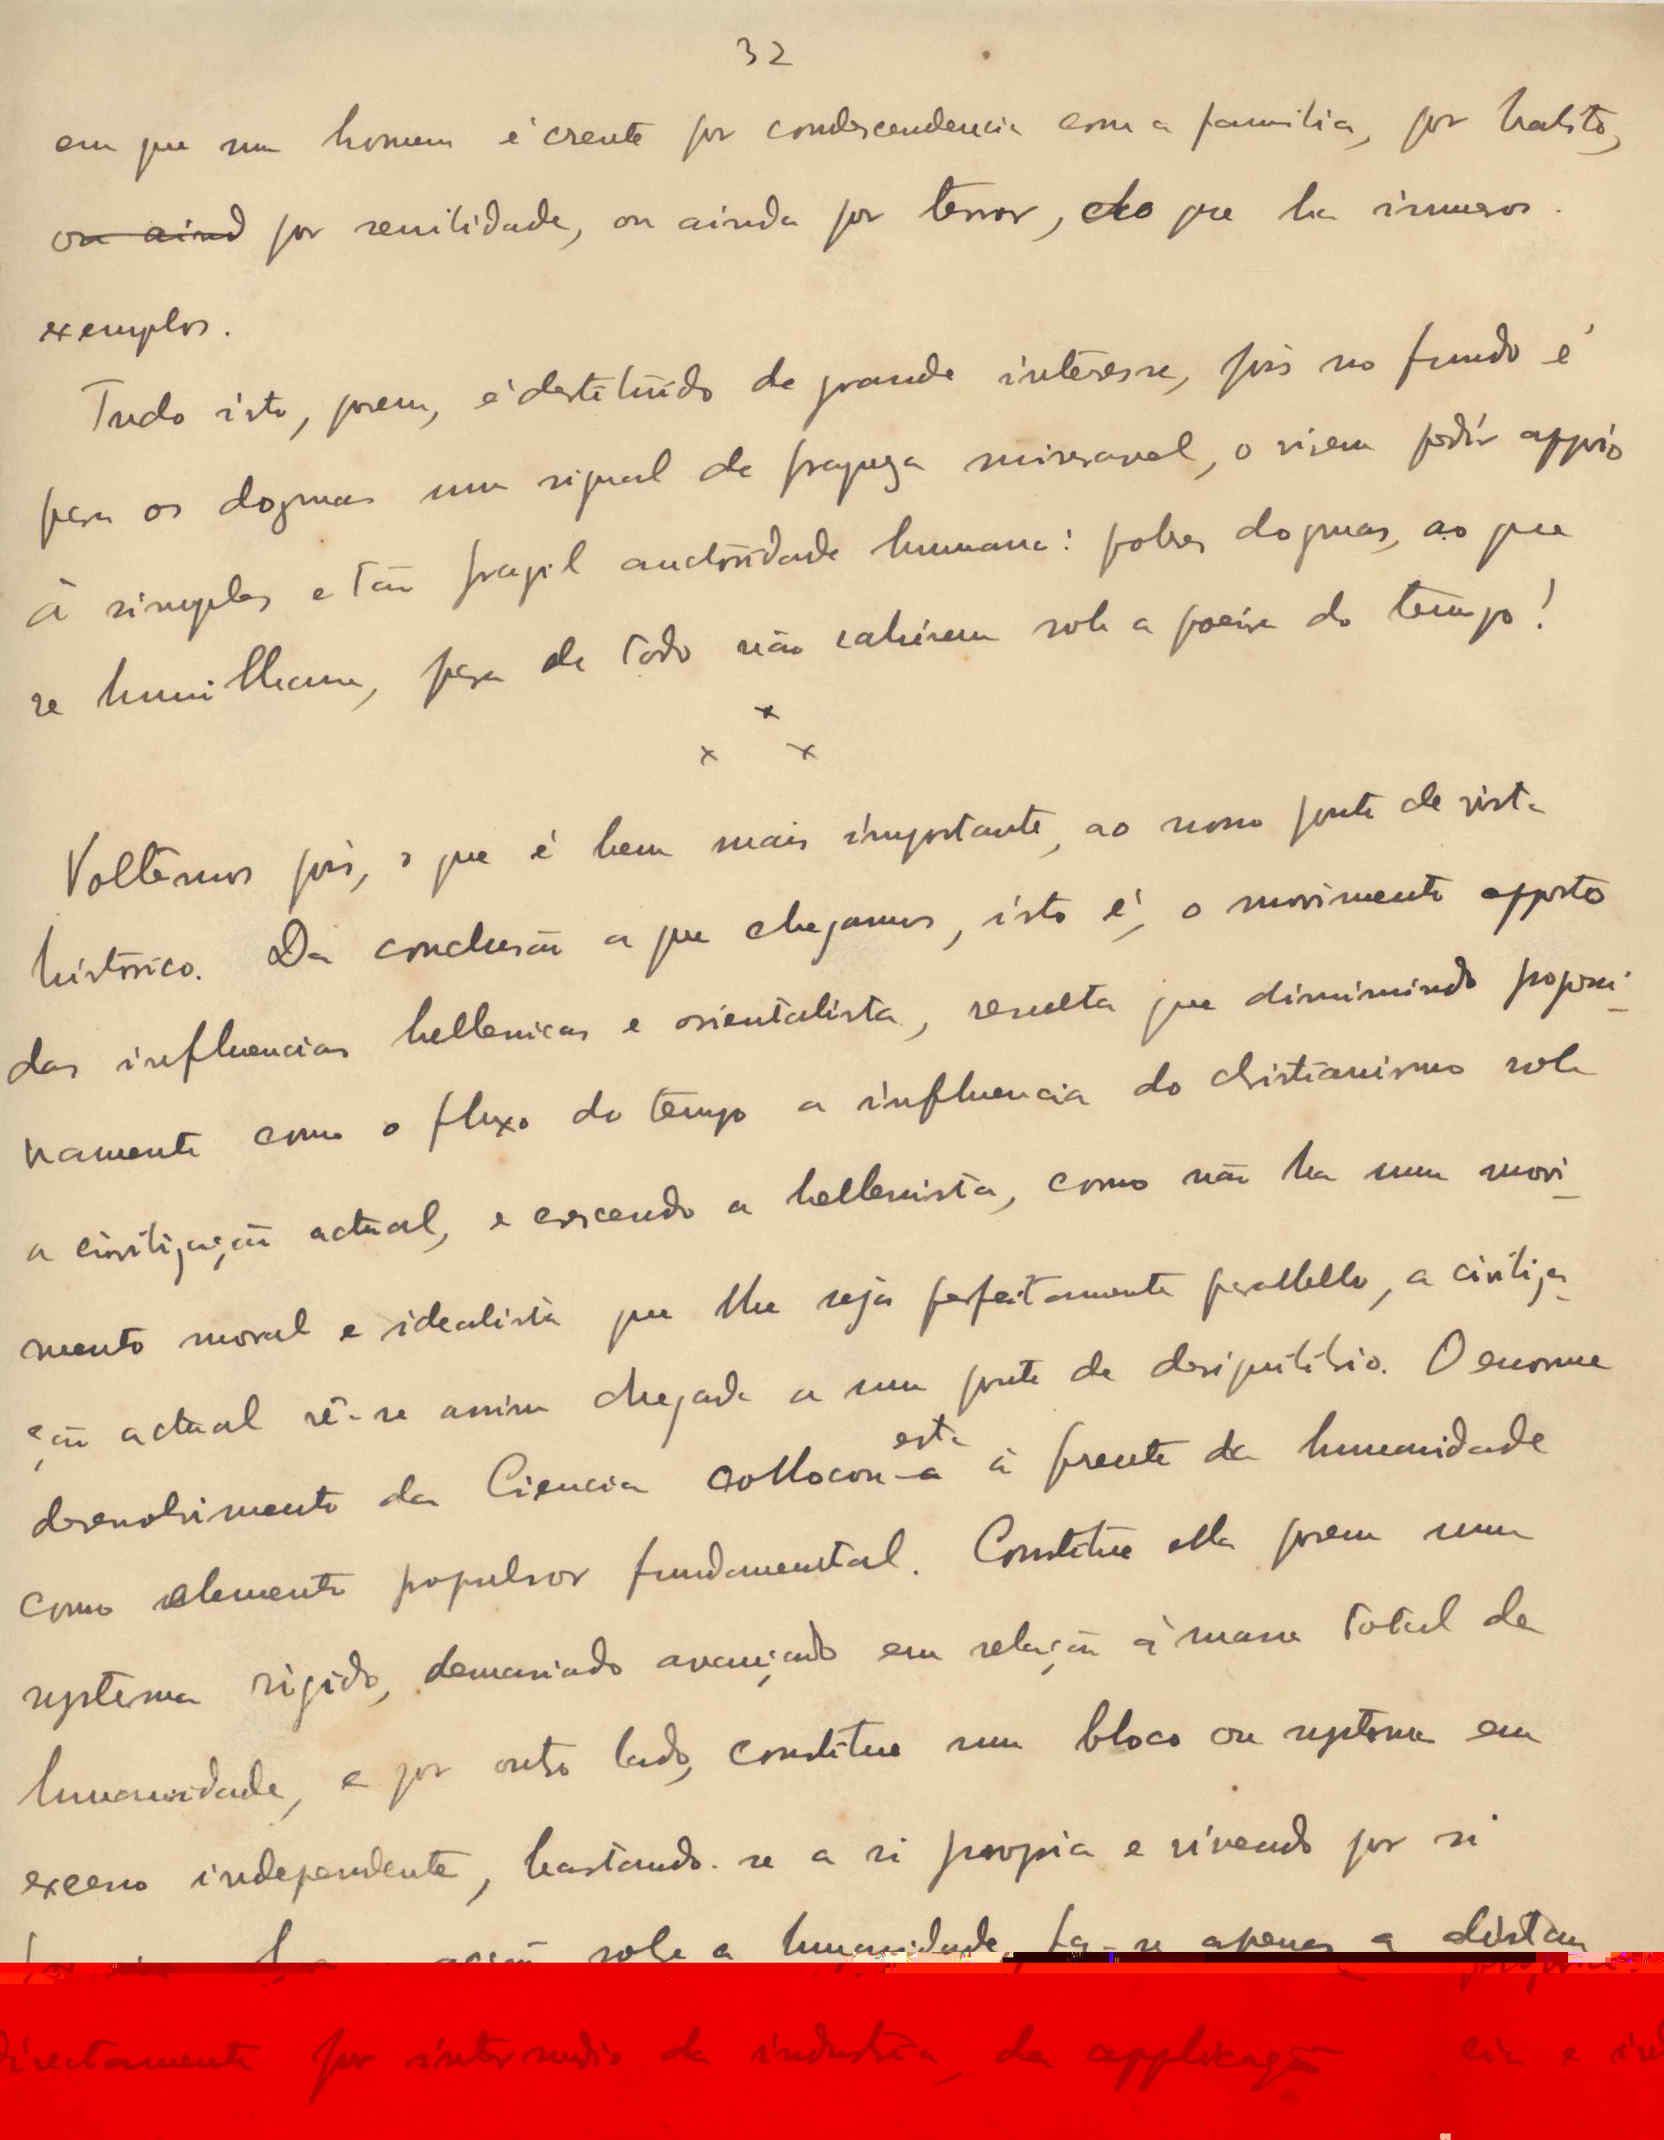 32
em que um homem é crente por condescendencia com a familia, por habito,
ou aind por senilidade, ou ainda por terror, do que ha innumeros
exemplos.
Tudo isto, porem, é destituido de grande interesse, pois no fundo é
para os dogmas um signal de fraqueza miseravel, o virem pedir appoio
á simples e tão fragil auctoridade humana: pobres dogmas, ao que
se humilham, para de todo não cahirem sob a poeira do tempo!
x
x x
Voltemos pois, o que é bem mais importante, ao nosso ponto de vista
histórico. Da conclusão a que chegamos, isto é, o movimento opposto
das influencias hellenicas e orientalista, resulta que diminuindo proporcio-
namente com o fluxo do tempo a influencia do christianismo sob
a civilização actual, e crescendo a hellenista, como não ha um movi-
mento moral e idealista que lhe seja perfeitamente parallello, a civiliza-
ção actual vê-se assim chegada a um ponto de desiquilibrio. O enorme
desenvolvimento da Ciencia collocou-a esta á frente da humanidade
como elemento propulsor fundamental. Constitue ella porem um
systema rigido, demasiado avançado em relação á massa total da
humanidade, e por outro lado, constitue um bloco ou systema em
excesso independente, bastando-se a si propria e vivendo por si
acção sobre a humanidade faz-se apenas a distan
directamente por intermedio da industria, da applicação cia e ind